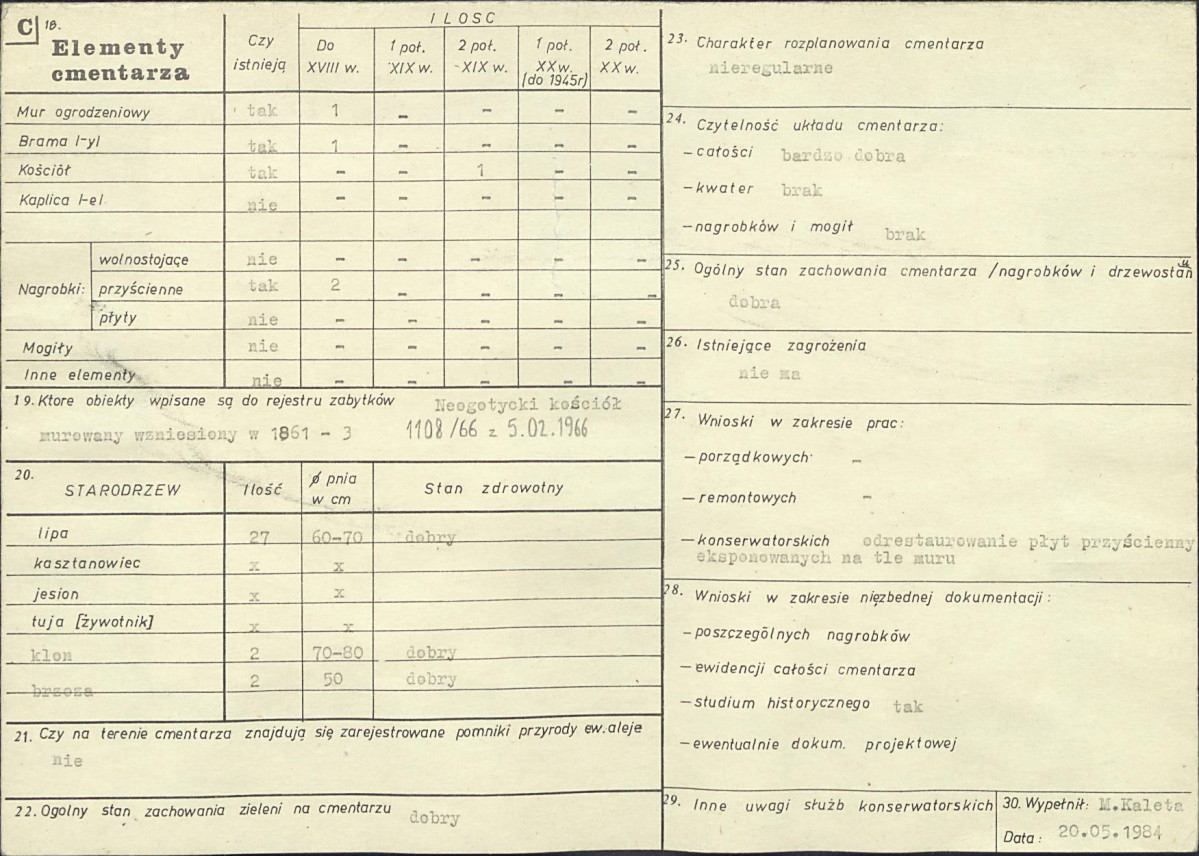 C 18.
Elementy
cmentarza
Czy
istnieją
ILOSC
Do
XVIII w.
1 poł.
XIX w.
2 poł.
XIX w.
1 poł.
XX w.
(do 1945r)
2 poł.
XX w.
Mur ogrodzeniowy tak 1 - - - -
Brama /-y/ tak 1 - - - -
Kościół tak - - 1 - -
Kaplica /-e/ nie - - - - -
Nagrobki:
wolnostojące nie - - - - -
przyścienne tak 2 - - - -
płyty nie - - - - -
Mogiły nie - - - - -
Inne elementy nie - - - - -
19. Ktore obiekty wpisane są do rejestru zabytków Neogotycki kościół
murowany wzniesiony w 1861 - 3 1108/66 z 5.02.1966
20.
STARODRZEW Ilość ø pnia
w cm Stan zdrowotny
lipa 27 60-70 dobry
kasztanowiec x x
jesion x x
tuja [żywotnik] x x
klon 2 70-80 dobry
brzoza 2 50 dobry
21. Czy na terenie cmentarza znajdują się zarejestrowane pomniki przyrody ew. aleje
nie
22. Ogolny stan zachowania zieleni na cmentarzu dobry
23. Charakter rozplanowania cmentarza
nieregularne
24. Czytelność układu cmentarza:
- całości bardzo dobra
- kwater brak
- nagrobków i mogił brak
25. Ogólny stan zachowania cmentarza /nagrobków i drzewostanu
dobra
26. Istniejące zagrożenia
nie ma
27. Wnioski w zakresie prac:
- porządkowych -
- remontowych -
- konserwatorskich odrestaurowanie płyt przyścienny
eksponowanych na tle muru
28. Wnioski w zakresie nięzbednej dokumentacji:
- poszczególnych nagrobków
- ewidencji całości cmentarza
- studium historycznego tak
- ewentualnie dokum. projektowej
29. Inne uwagi służb konserwatorskich
30. Wypełnił: M.Kaleta
Data: 20.05.1984